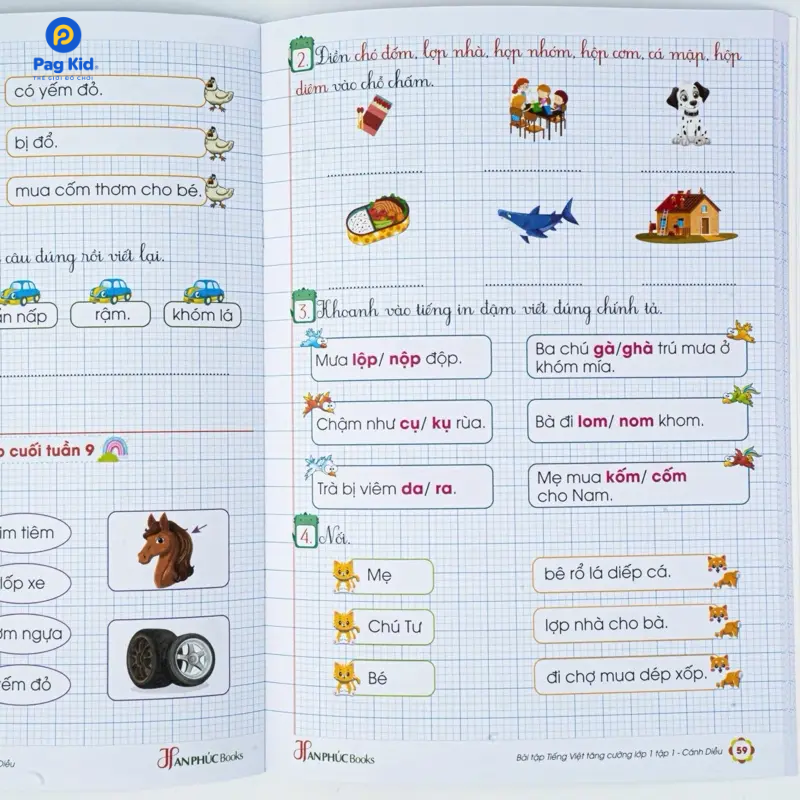 Pag Kid
THẾ GIỚI ĐỒ CHƠI
có yếm đỏ.
bị đổ.
mua cốm thơm cho bé.
câu đúng rồi viết lại.
nấp
rậm.
khóm lá
cuối tuần 9
tiêm
lốp xe
ngựa
đỏ
HANPHÚC Books
2. Điền chó đốm, lợp nhà, họp nhóm, hộp cơm, cá mập, hộp
diêm vào chỗ chấm.
3. Khoanh vào tiếng in đậm viết đúng chính tả.
Mưa lộp/ nộp độp.
Ba chú gà/ghà trú mưa ở
khóm mía.
Chậm như cụ/ kụ rùa.
Bà đi lom/ nom khom.
Trà bị viêm da/ ra.
Mẹ mua kốm/ cốm
cho Nam.
4. Nối.
Mẹ
bê rổ lá diếp cá.
Chú Tư
lợp nhà cho bà.
Bé
đi chợ mua dép xốp.
HANPHÚC Books
Bài tập Tiếng Việt tăng cường lớp 1 tập 1 - Cánh Diều
59